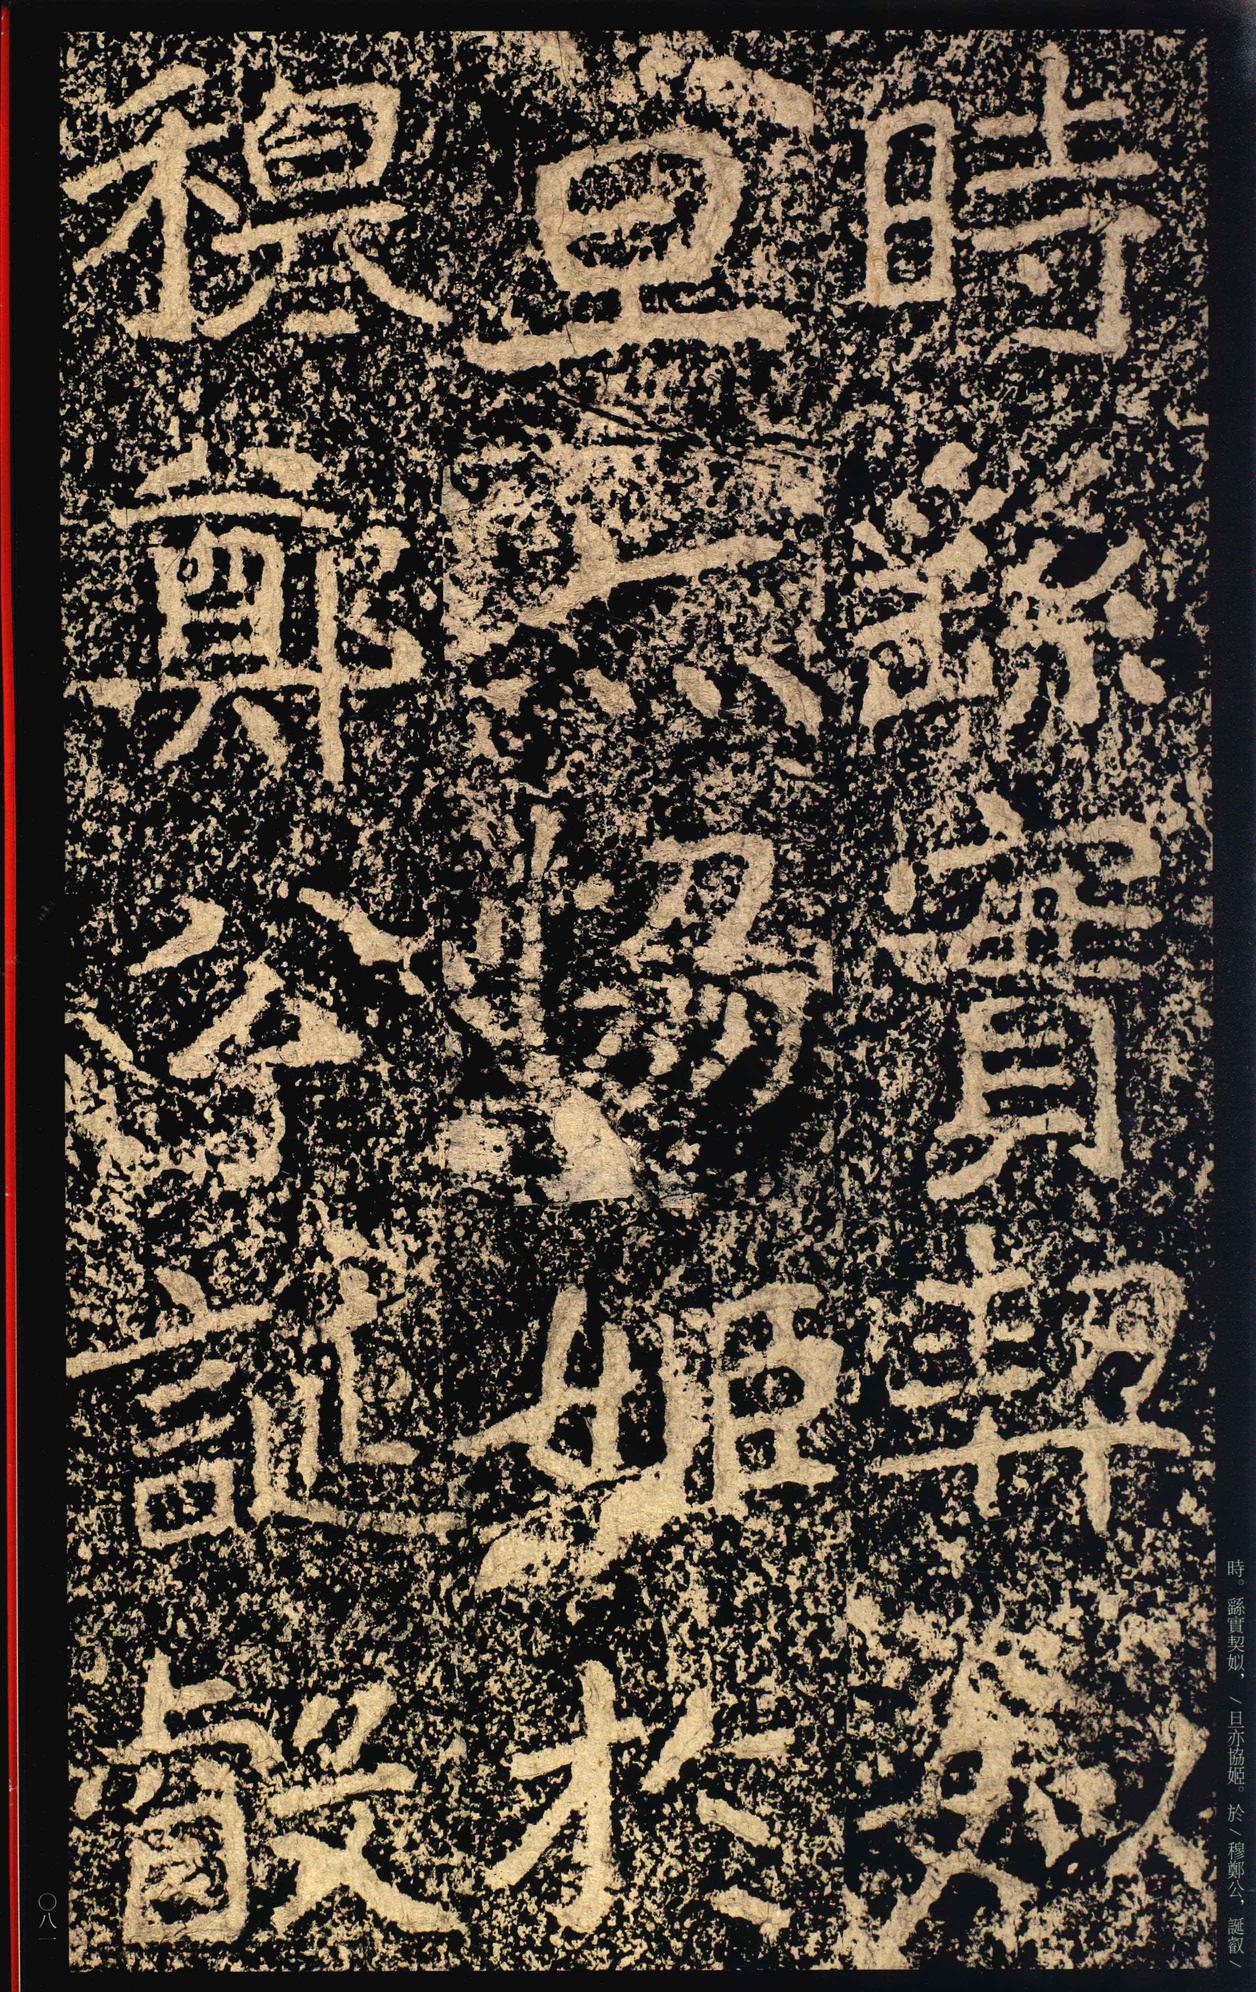 時繇實契姒
旦亦協姬於
穆鄭公誕叡
時。繇實契姒，/旦亦協姬。於/穆鄭公，誕叡/
〇八一